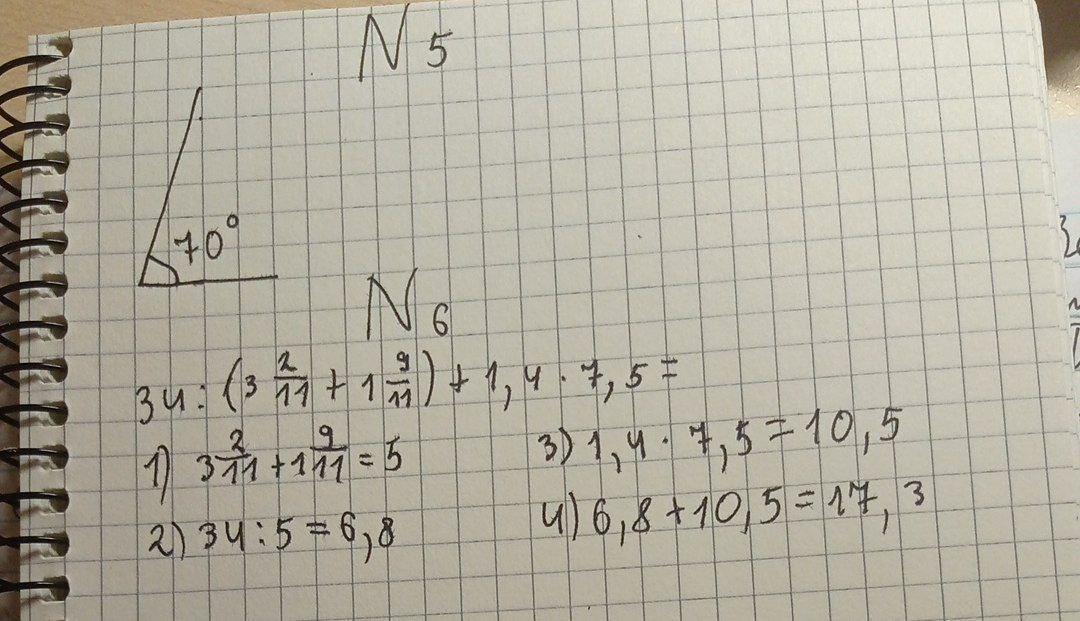 N 5
70°
N 6
34 : (3 2/11 + 1 9/11) + 1,4 · 7,5 =
1) 3 2/11 + 1 9/11 = 5
2) 34 : 5 = 6,8
3) 1,4 · 7,5 = 10,5
4) 6,8 + 10,5 = 17,3